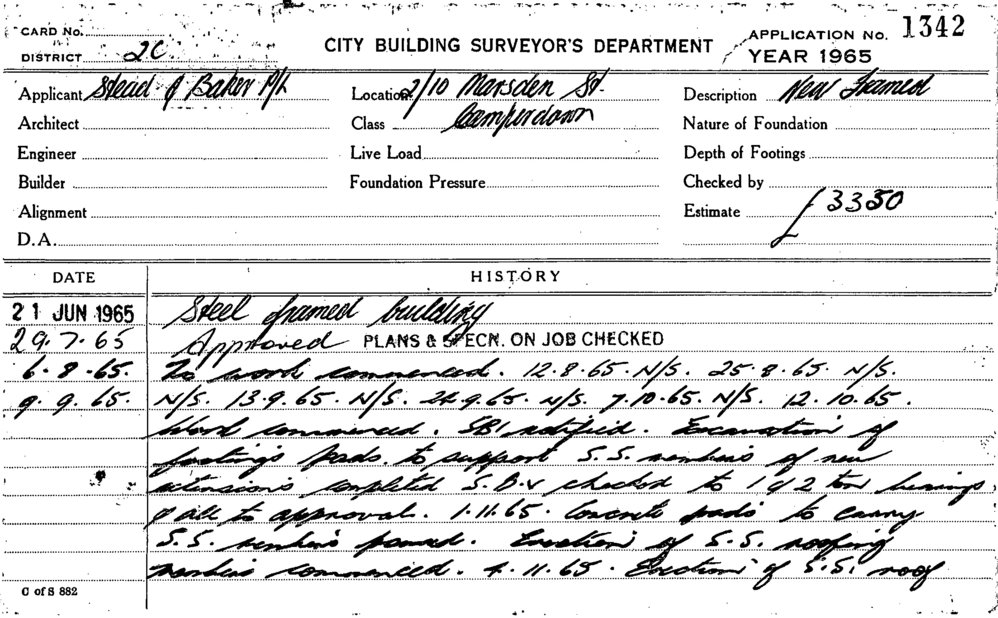 CARD No.
DISTRICT 2C
CITY BUILDING SURVEYOR'S DEPARTMENT
APPLICATION No. 1342
YEAR 1965
Applicant Stead & Baker P/L
Location 2/10 Marsden St.
Description New Framed
Architect
Class Camperdown
Nature of Foundation
Engineer
Live Load
Depth of Footings
Builder
Foundation Pressure
Checked by
Alignment
Estimate £3350
D.A.
DATE
HISTORY
21 JUN 1965 Steel framed building
29.7.65 Approved PLANS & SPECN. ON JOB CHECKED
6.8.65. No work commenced. 12.8.65. N/S. 25.8.65. N/S.
9.9.65. N/S. 13.9.65. N/S. 24.9.65. N/S. 7.10.65. N/S. 12.10.65.
Work commenced. SBI notified. Excavation of
footings pads to support S.S. members of new
extensions completed S.B.I. checked to 1 & 2 ton bearings
& all to approval. 1.11.65. Concrete pads to carry
S.S. members poured. Erection of S.S. roofing
members commenced. 4.11.65. Erection of S.S. roof
C of S 882